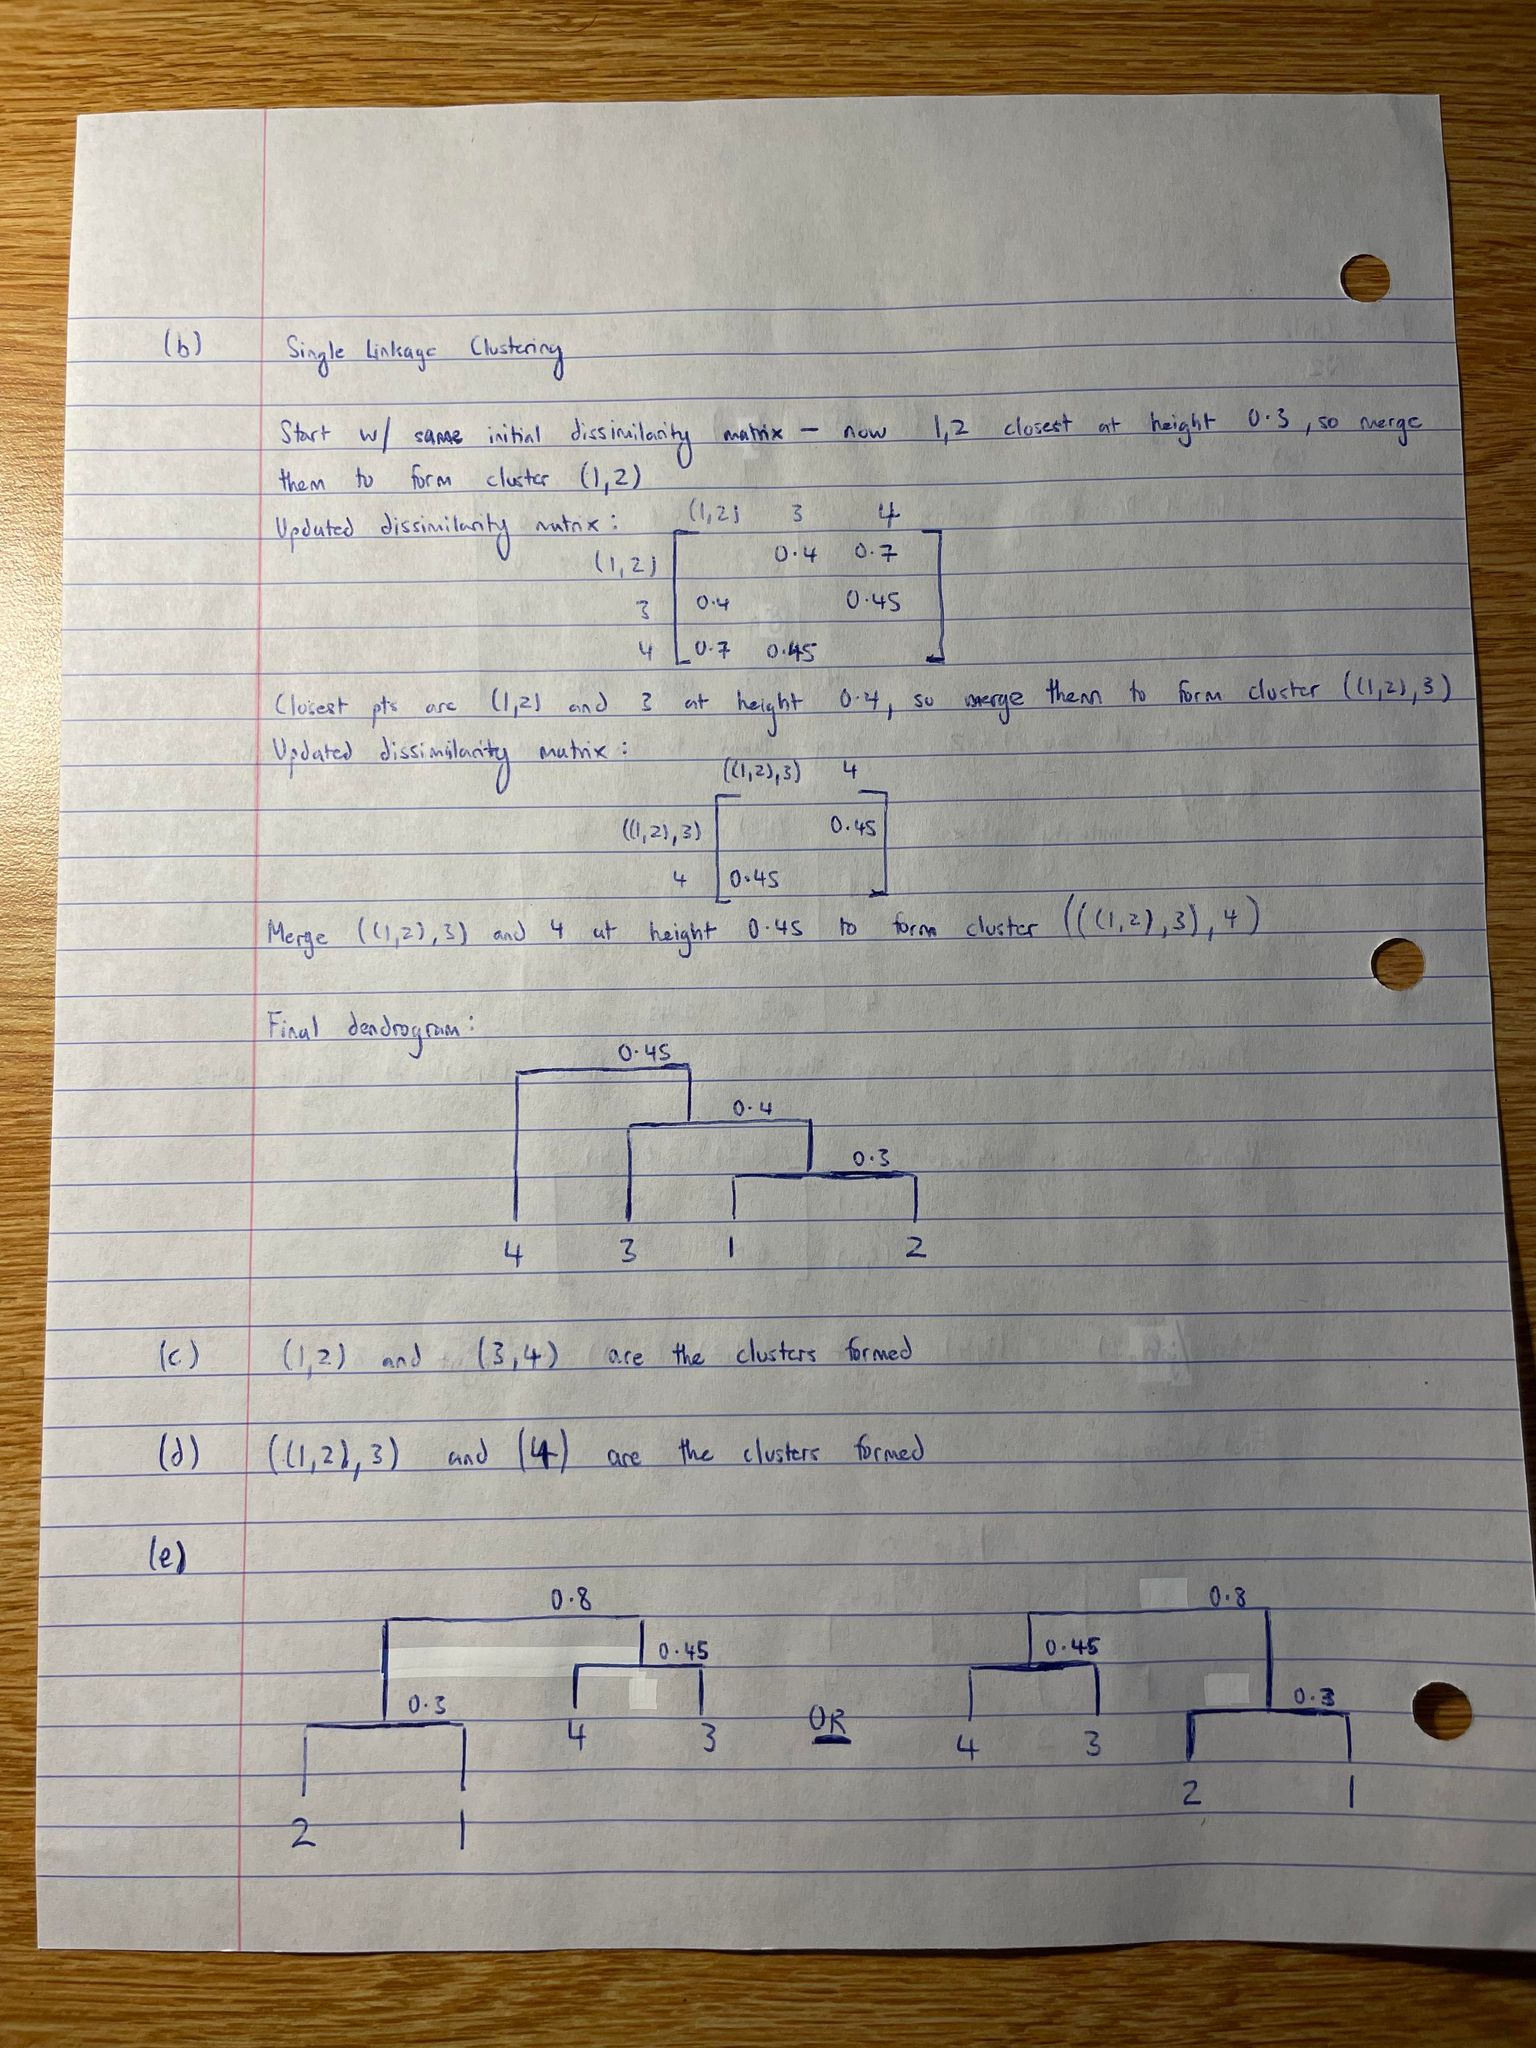 (b) Single Linkage Clustering
Start w/ same initial dissimilarity matrix – now 1,2 closest at height 0.3, so merge
them to form cluster (1,2)
Updated dissimilarity matrix: (1,2) 3 4
(1,2) 0.4 0.7
3 0.4 0.45
4 0.7 0.45
Closest pts are (1,2) and 3 at height 0.4, so merge them to form cluster ((1,2),3)
Updated dissimilarity matrix:
((1,2),3) 4
((1,2),3) 0.45
4 0.45
Merge ((1,2),3) and 4 at height 0.45 to form cluster (((1,2),3),4)
Final dendrogram:
0.45
0.4
0.3
4 3 1 2
(c) (1,2) and (3,4) are the clusters formed
(d) ((1,2),3) and (4) are the clusters formed
(e)
0.8 0.8
0.45 0.45
0.3 0.3
4 3 OR 4 3
2 1 2 1